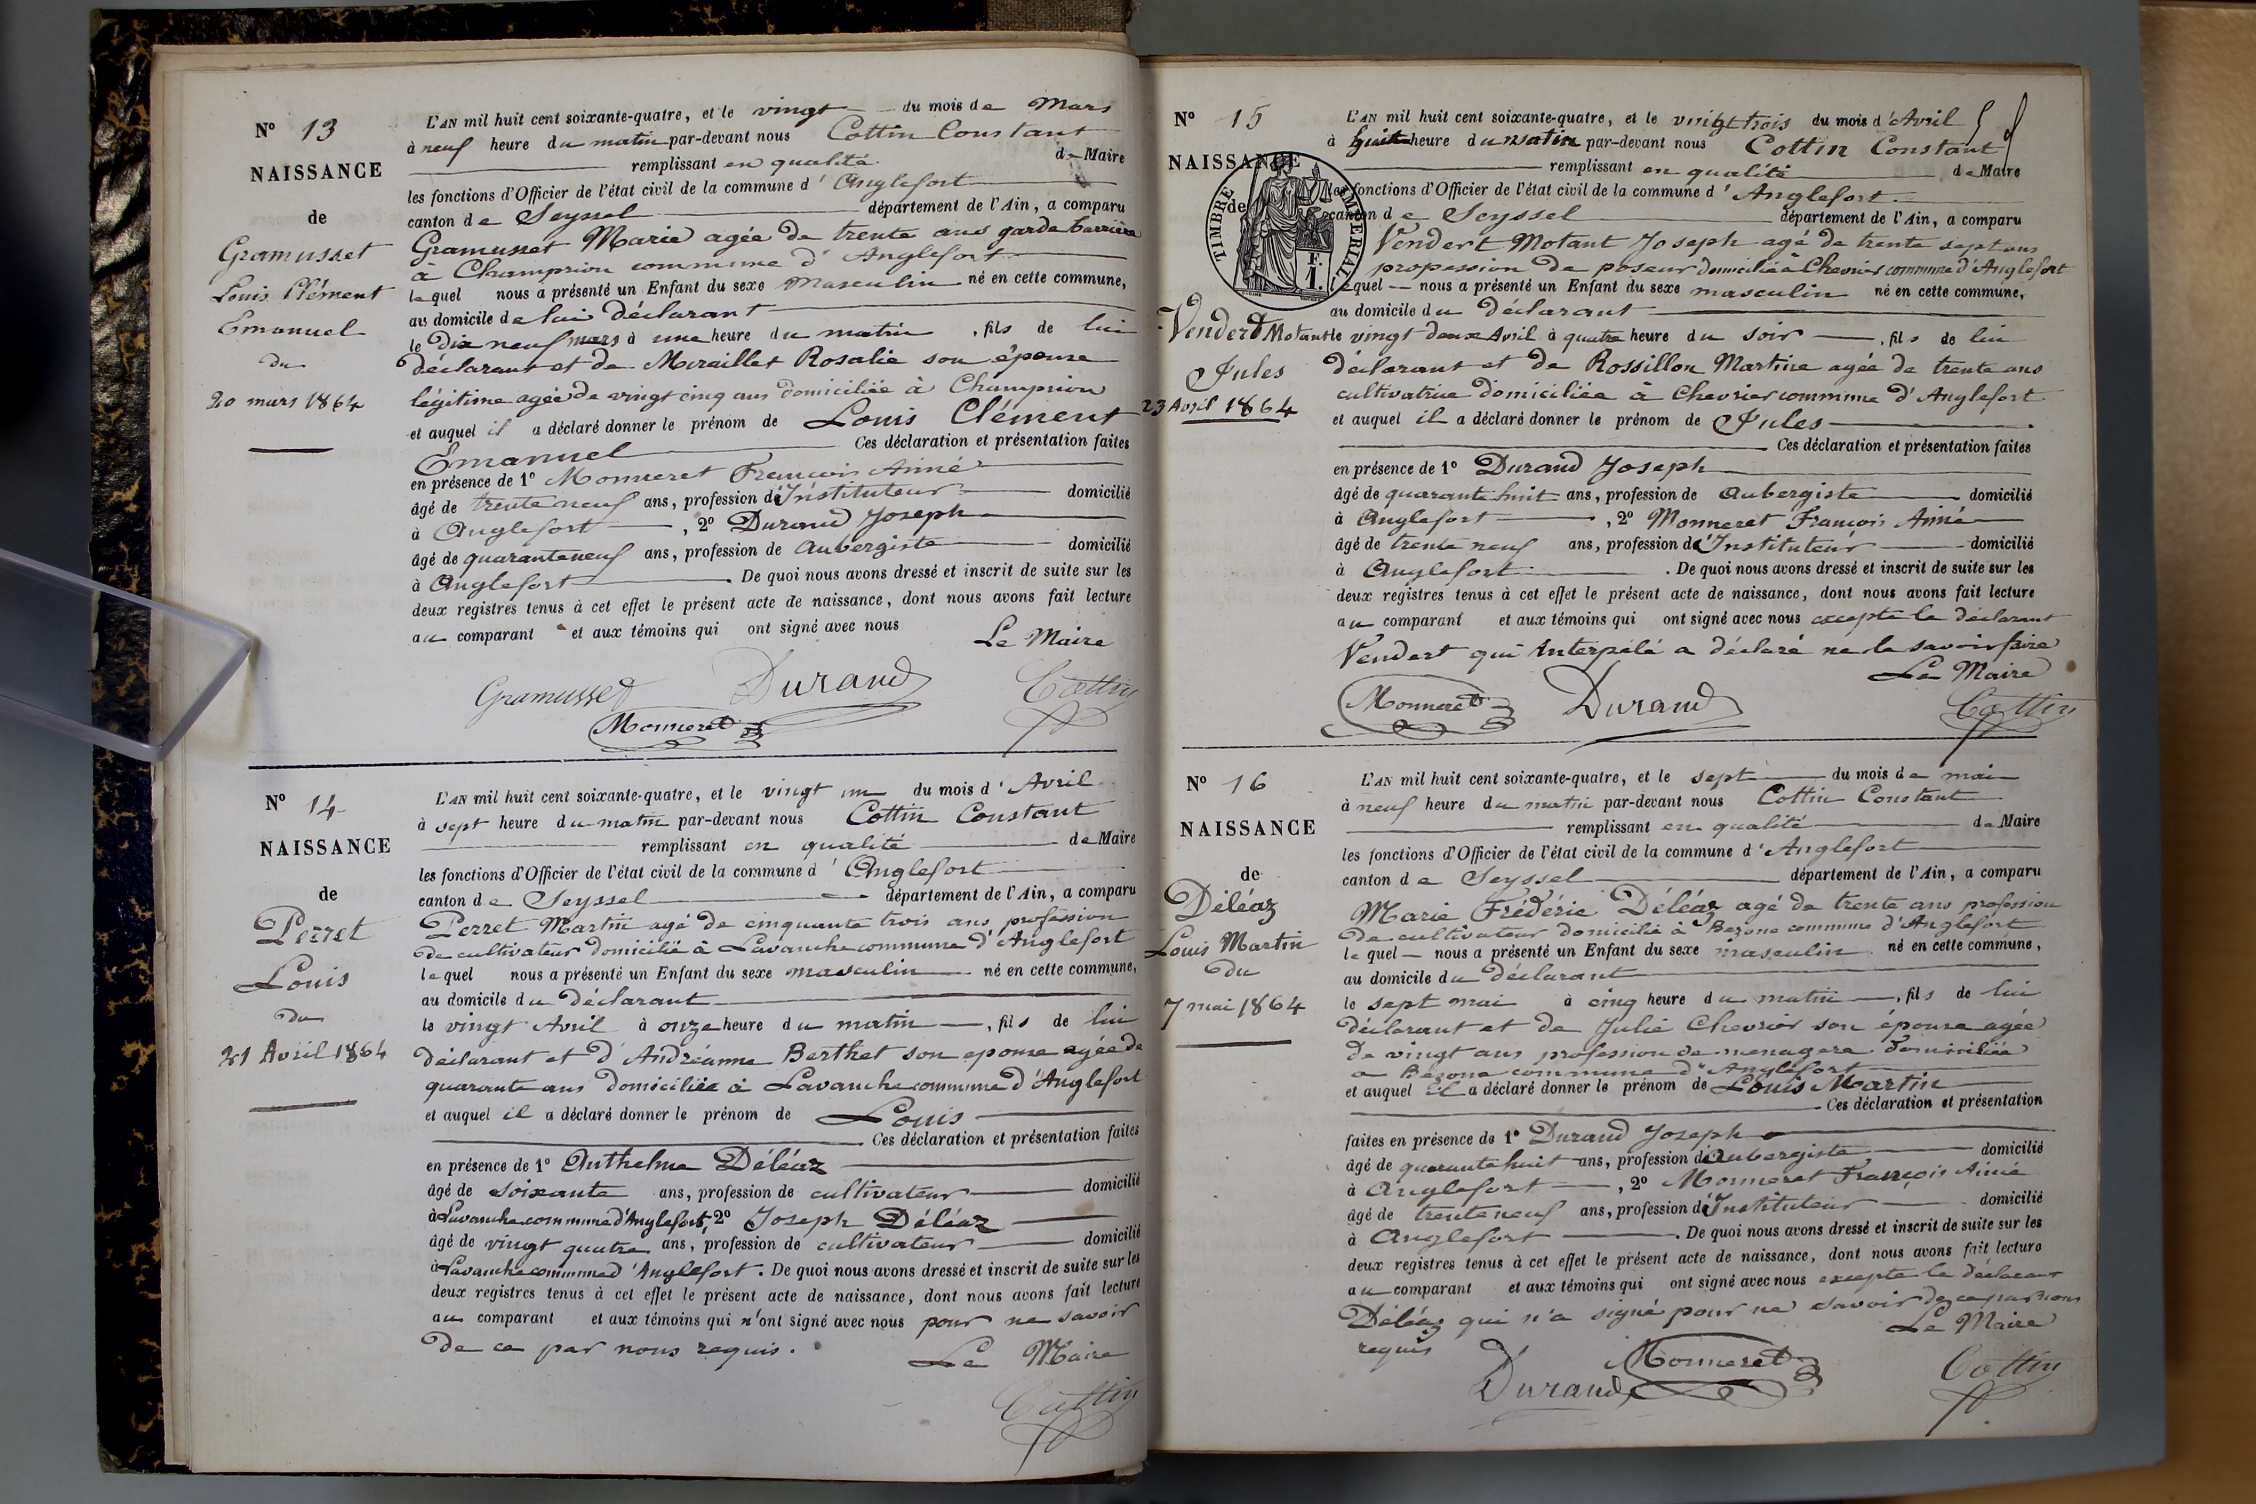 N° 13
NAISSANCE
de
Gramusset
Louis Clément
Emanuel
du
20 mars 1864
L'AN mil huit cent soixante-quatre, et le vingt du mois de Mars
à neuf heure du matin par-devant nous Cottin Constant
remplissant en qualité de Maire
les fonctions d'Officier de l'état civil de la commune d'Anglefort
canton de Seyssel département de l'Ain, a comparu
Gramusset Marie agée de trente ans garde barrière
à Champrion commune d'Anglefort
lequel nous a présenté un Enfant du sexe Masculin né en cette commune,
au domicile de lui déclarant
le Dix neuf mars à une heure du matin, fils de lui
déclarant et de Miraillet Rosalie son épouse
légitime agée de vingt cinq ans domiciliée à Champrion
et auquel il a déclaré donner le prénom de Louis Clément
Emanuel Ces déclaration et présentation faites
en présence de 1° Monneret François Aimé
âgé de trente neuf ans, profession d'Instituteur domicilié
à Anglefort, 2° Durand Joseph
âgé de quaranteneuf ans, profession de Aubergiste domicilié
à Anglefort. De quoi nous avons dressé et inscrit de suite sur les
deux registres tenus à cet effet le présent acte de naissance, dont nous avons fait lecture
au comparant et aux témoins qui ont signé avec nous
Le Maire
Gramusset Durand Cottin
Monneret
N° 14
NAISSANCE
de
Perret
Louis
du
21 Avril 1864
L'AN mil huit cent soixante-quatre, et le vingt un du mois d'Avril
à sept heure du matin par-devant nous Cottin Constant
remplissant en qualité de Maire
les fonctions d'Officier de l'état civil de la commune d'Anglefort
canton de Seyssel département de l'Ain, a comparu
Perret Martin agé de cinquante trois ans profession
de cultivateur domicilié à Lavanche commune d'Anglefort
lequel nous a présenté un Enfant du sexe masculin né en cette commune,
au domicile du déclarant
le vingt Avril à onze heure du matin, fils de lui
déclarant et d'Andréanne Berthet son epouse agée de
quarante ans domiciliée à Lavanche commune d'Anglefort
et auquel il a déclaré donner le prénom de Louis
Ces déclaration et présentation faites
en présence de 1° Anthelme Déléaz
âgé de soixante ans, profession de cultivateur domicilié
à Lavanche commune d'Anglefort, 2° Joseph Déléaz
âgé de vingt quatre ans, profession de cultivateur domicilié
à Lavanche commune d'Anglefort. De quoi nous avons dressé et inscrit de suite sur les
deux registres tenus à cet effet le présent acte de naissance, dont nous avons fait lecture
au comparant et aux témoins qui n'ont signé avec nous pour ne savoir
de ce par nous requis.
Le Maire
Cottin
N° 15
NAISSANCE
de
TIMBRE IMPERIAL
F. 1.
Vendert Motant
Jules
23 Avril 1864
L'AN mil huit cent soixante-quatre, et le vingt trois du mois d'Avril
à huit heure du matin par-devant nous Cottin Constant
remplissant en qualité de Maire
les fonctions d'Officier de l'état civil de la commune d'Anglefort
canton de Seyssel département de l'Ain, a comparu
Vendert Motant Joseph agé de trente sept ans
propession de poseur domicilié à Chevrier commune d'Anglefort
lequel nous a présenté un Enfant du sexe masculin né en cette commune,
au domicile du déclarant
le vingt deux Avril à quatre heure du soir, fils de lui
déclarant et de Rossillon Martine agée de trente ans
cultivatrice domiciliée à Chevrier commune d'Anglefort
et auquel il a déclaré donner le prénom de Jules
Ces déclaration et présentation faites
en présence de 1° Durand Joseph
âgé de quarante huit ans, profession de Aubergiste domicilié
à Anglefort, 2° Monneret François Aimé
âgé de trente neuf ans, profession d'Instituteur domicilié
à Anglefort. De quoi nous avons dressé et inscrit de suite sur les
deux registres tenus à cet effet le présent acte de naissance, dont nous avons fait lecture
au comparant et aux témoins qui ont signé avec nous excepte le déclarant
Vendert qui Interpélé a déclaré ne le savoir faire
Le Maire
Monneret Durand Cottin
N° 16
NAISSANCE
de
Déléaz
Louis Martin
du
7 mai 1864
L'AN mil huit cent soixante-quatre, et le sept du mois de mai
à neuf heure du matin par-devant nous Cottin Constant
remplissant en qualité de Maire
les fonctions d'Officier de l'état civil de la commune d'Anglefort
canton de Seyssel département de l'Ain, a comparu
Marie Frédéric Déléaz agé de trente ans profession
de cultivateur domicilié à Bezone commune d'Anglefort
lequel nous a présenté un Enfant du sexe masculin né en cette commune,
au domicile du déclarant
le sept mai à cinq heure du matin, fils de lui
déclarant et de Julie Chevrier son épouse agée
de vingt ans profession de menagere domiciliée
a Bezone commune d'Anglefort
et auquel il a déclaré donner le prénom de Louis Martin
Ces déclaration et présentation
faites en présence de 1° Durand Joseph
âgé de quarante huit ans, profession d'Aubergiste domicilié
à Anglefort, 2° Monneret François Aimé
âgé de trente neuf ans, profession d'Instituteur domicilié
à Anglefort. De quoi nous avons dressé et inscrit de suite sur les
deux registres tenus à cet effet le présent acte de naissance, dont nous avons fait lecture
au comparant et aux témoins qui ont signé avec nous excepte le déclarant
Déléaz qui n'a signé pour ne savoir de ce par nous
requis
Le Maire
Durand Monneret Cottin